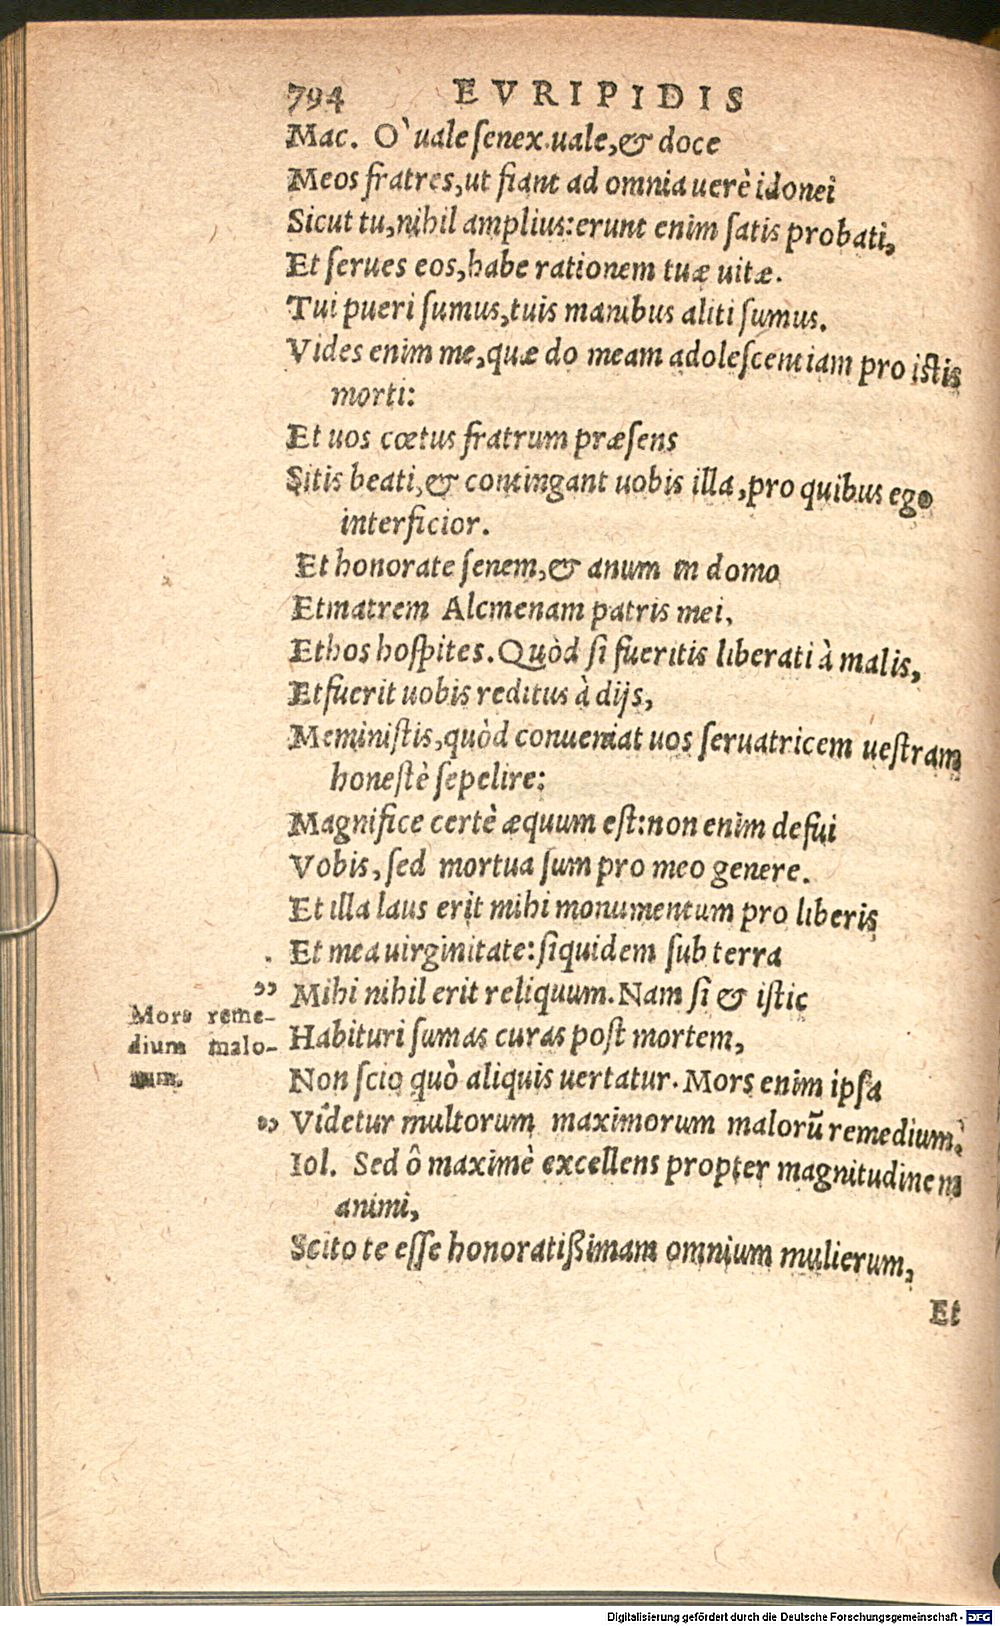 794 EVRIPIDIS
Mac. O` uale ſenex uale, & doce
Meos fratres, ut fiant ad omnia uerè idonei
Sicut tu, nihil amplius: erunt enim ſatis probati,
Et ſerues eos, habe rationem tuæ uitæ.
Tui pueri ſumus, tuis manibus aliti ſumus.
Vides enim me, quæ do meam adoleſcentiam pro iſtis
morti:
Et uos cœtus fratrum præſens
Sitis beati, & contingant uobis illa, pro quibus ego
interficior.
Et honorate ſenem, & anum in domo
Et matrem Alcmenam patris mei,
Et hos hoſpites. Quòd ſi fueritis liberati à malis,
Et fuerit uobis reditus à dijs,
Meminiſtis, quòd conueniat uos ſeruatricem ueſtram
honeſtè ſepelire:
Magnifice certè æquum eſt: non enim defui
Vobis, ſed mortua ſum pro meo genere.
Et illa laus erit mihi monumentum pro liberis
Et mea uirginitate: ſiquidem ſub terra
„ Mihi nihil erit reliquum. Nam ſi & iſtic
Mors reme-
dium malo-
rum.
Habituri ſumas curas poſt mortem,
Non ſcio quò aliquis uertatur. Mors enim ipſa
„ Videtur multorum maximorum malorũ remedium.
Iol. Sed ô maximè excellens propter magnitudinem
animi,
Scito te eſſe honoratißimam omnium mulierum,
Et
Digitalisierung gefördert durch die Deutsche Forschungsgemeinschaft - DFG